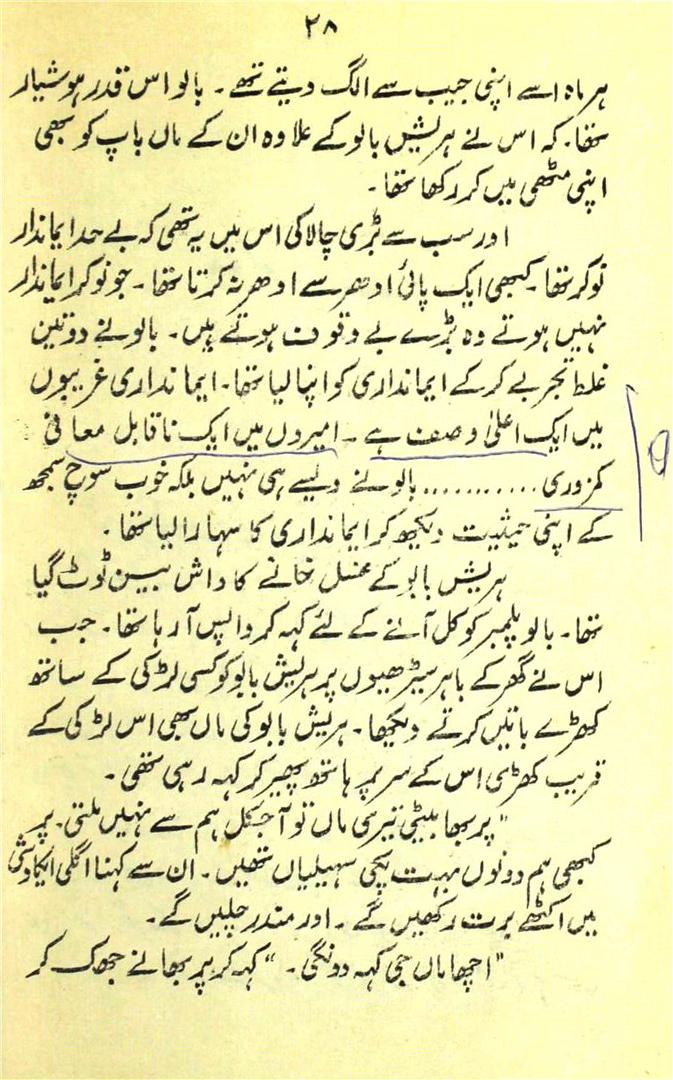 ۲۸
ہر ماہ اسے اپنی جیب سے الگ دیتے تھے ۔ بالو اس قدر ہوشیار
تھا۔ کہ اس نے ہریش بابو کے علاوہ ان کے ماں باپ کو بھی
اپنی مٹھی میں کر رکھا تھا ۔
اور سب سے بڑی چالاکی اس میں یہ تھی کہ بے حد ایماندار
نوکر تھا ۔ کبھی ایک پائی ادھر سے ادھر نہ کرتا تھا ۔ جو نوکر ایماندار
نہیں ہوتے وہ بڑے بے وقوف ہوتے ہیں ۔ بالو نے دو تین
غلط تجربے کر کے ایمانداری کو اپنا لیا تھا ۔ ایمانداری غریبوں
میں ایک اعلیٰ وصف ہے ۔ امیروں میں ایک ناقابل معافی
کمزوری ........... بالو نے ویسے ہی نہیں بلکہ خوب سوچ سمجھ
کے اپنی حیثیت دیکھ کر ایمانداری کا سہارا لیا تھا ۔
ہریش بابو کے غسل خانے کا داش بیسن ٹوٹ گیا
تھا ۔ بالو پلمبر کو کل آنے کے لئے کہہ کر واپس آ رہا تھا ۔ جب
اس نے گھر کے باہر سیڑھیوں پر ہریش بابو کو کسی لڑکی کے ساتھ
کھڑے باتیں کرتے دیکھا ۔ ہریش بابو کی ماں بھی اس لڑکی کے
قریب کھڑی اس کے سر پر ہاتھ پھیر کر کہہ رہی تھی ۔
" پربھا بیٹی تیری ماں تو آجکل ہم سے نہیں ملتی ۔ پر
کبھی ہم دونوں بہت پکی سہیلیاں تھیں ۔ ان سے کہنا اگلی ایکادشی
میں اکٹھے برت رکھیں گے ۔ اور مندر چلیں گے ۔
" اچھا ماں جی کہہ دونگی ۔ " کہہ کر پربھا نے جھک کر